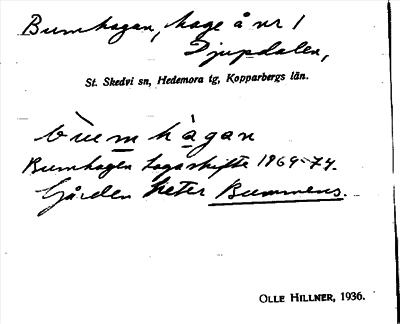 Bumhagan, hage å nr 1
Djupdalen,
St. Skedvi sn, Hedemora tg, Kopparbergs län.
hàgan
Bumhagen Lagaskifte 1969-74.
Gården heter Bummens.
OLLE HILLNER, 1936.